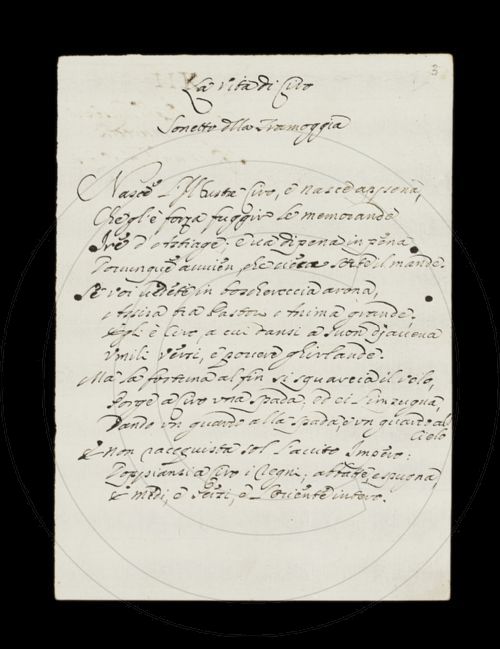 3
La vita di Ciro
Sonetto della Tramoggia
Nasce l'Illustre Ciro, e nasce appena,
Che gl'è forza fuggir le memorande
Ire d'Astiage; e và di pena in pena
Dovunque avvien, che
Se voi vedete in boschereccia arena,
tra Pastor Anima grande
Egli è Ciro, a cui dansi a suon d'avena
Umili versi, e povere ghirlande.
Ma la fortuna al fin si squarcia il velo,
Porge a Ciro una spada, ed ei l'impugna,
Dando un guardo alla spada, e un guardo al
Cielo
E non racquista sol l'avito Impero:
a Ciro i Regni; abbatte, espugna
E Medi, e e l'Oriente intero.